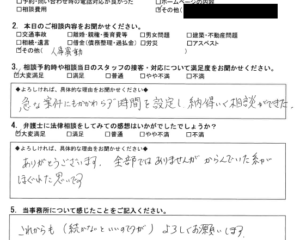 □予約・問い合わせ時の電話対応が良かった □ホームページの内容
□相談費用 ☑その他(
2. 本日のご相談内容をお聞かせください。
□交通事故 □離婚・親権・養育費等 □男女問題 □建築・不動産問題
□相続・遺言 □借金(債務整理・過払金) □労災 □アスベスト
☑その他(
3. 相談予約時や相談当日のスタッフの接客・対応について満足度をお聞かせください。
☑大変満足 □満足 □普通 □やや不満 □不満
◆よろしければ、具体的な理由をお聞かせください◆
急な案件にもかかわらず時間を設定し 納得いく相談ができた。
4. 弁護士に法律相談をしてみての感想はいかがでしたでしょうか?
☑大変満足 □満足 □普通 □やや不満 □不満
◆よろしければ、具体的な理由をお聞かせください◆
ありがとうございます。全部ではありませんが からんでいた糸が
ほぐれた思いです
5. 当事務所について感じたことをご記入ください。
これからも(続かないといいのですが)よろしくお願いします。